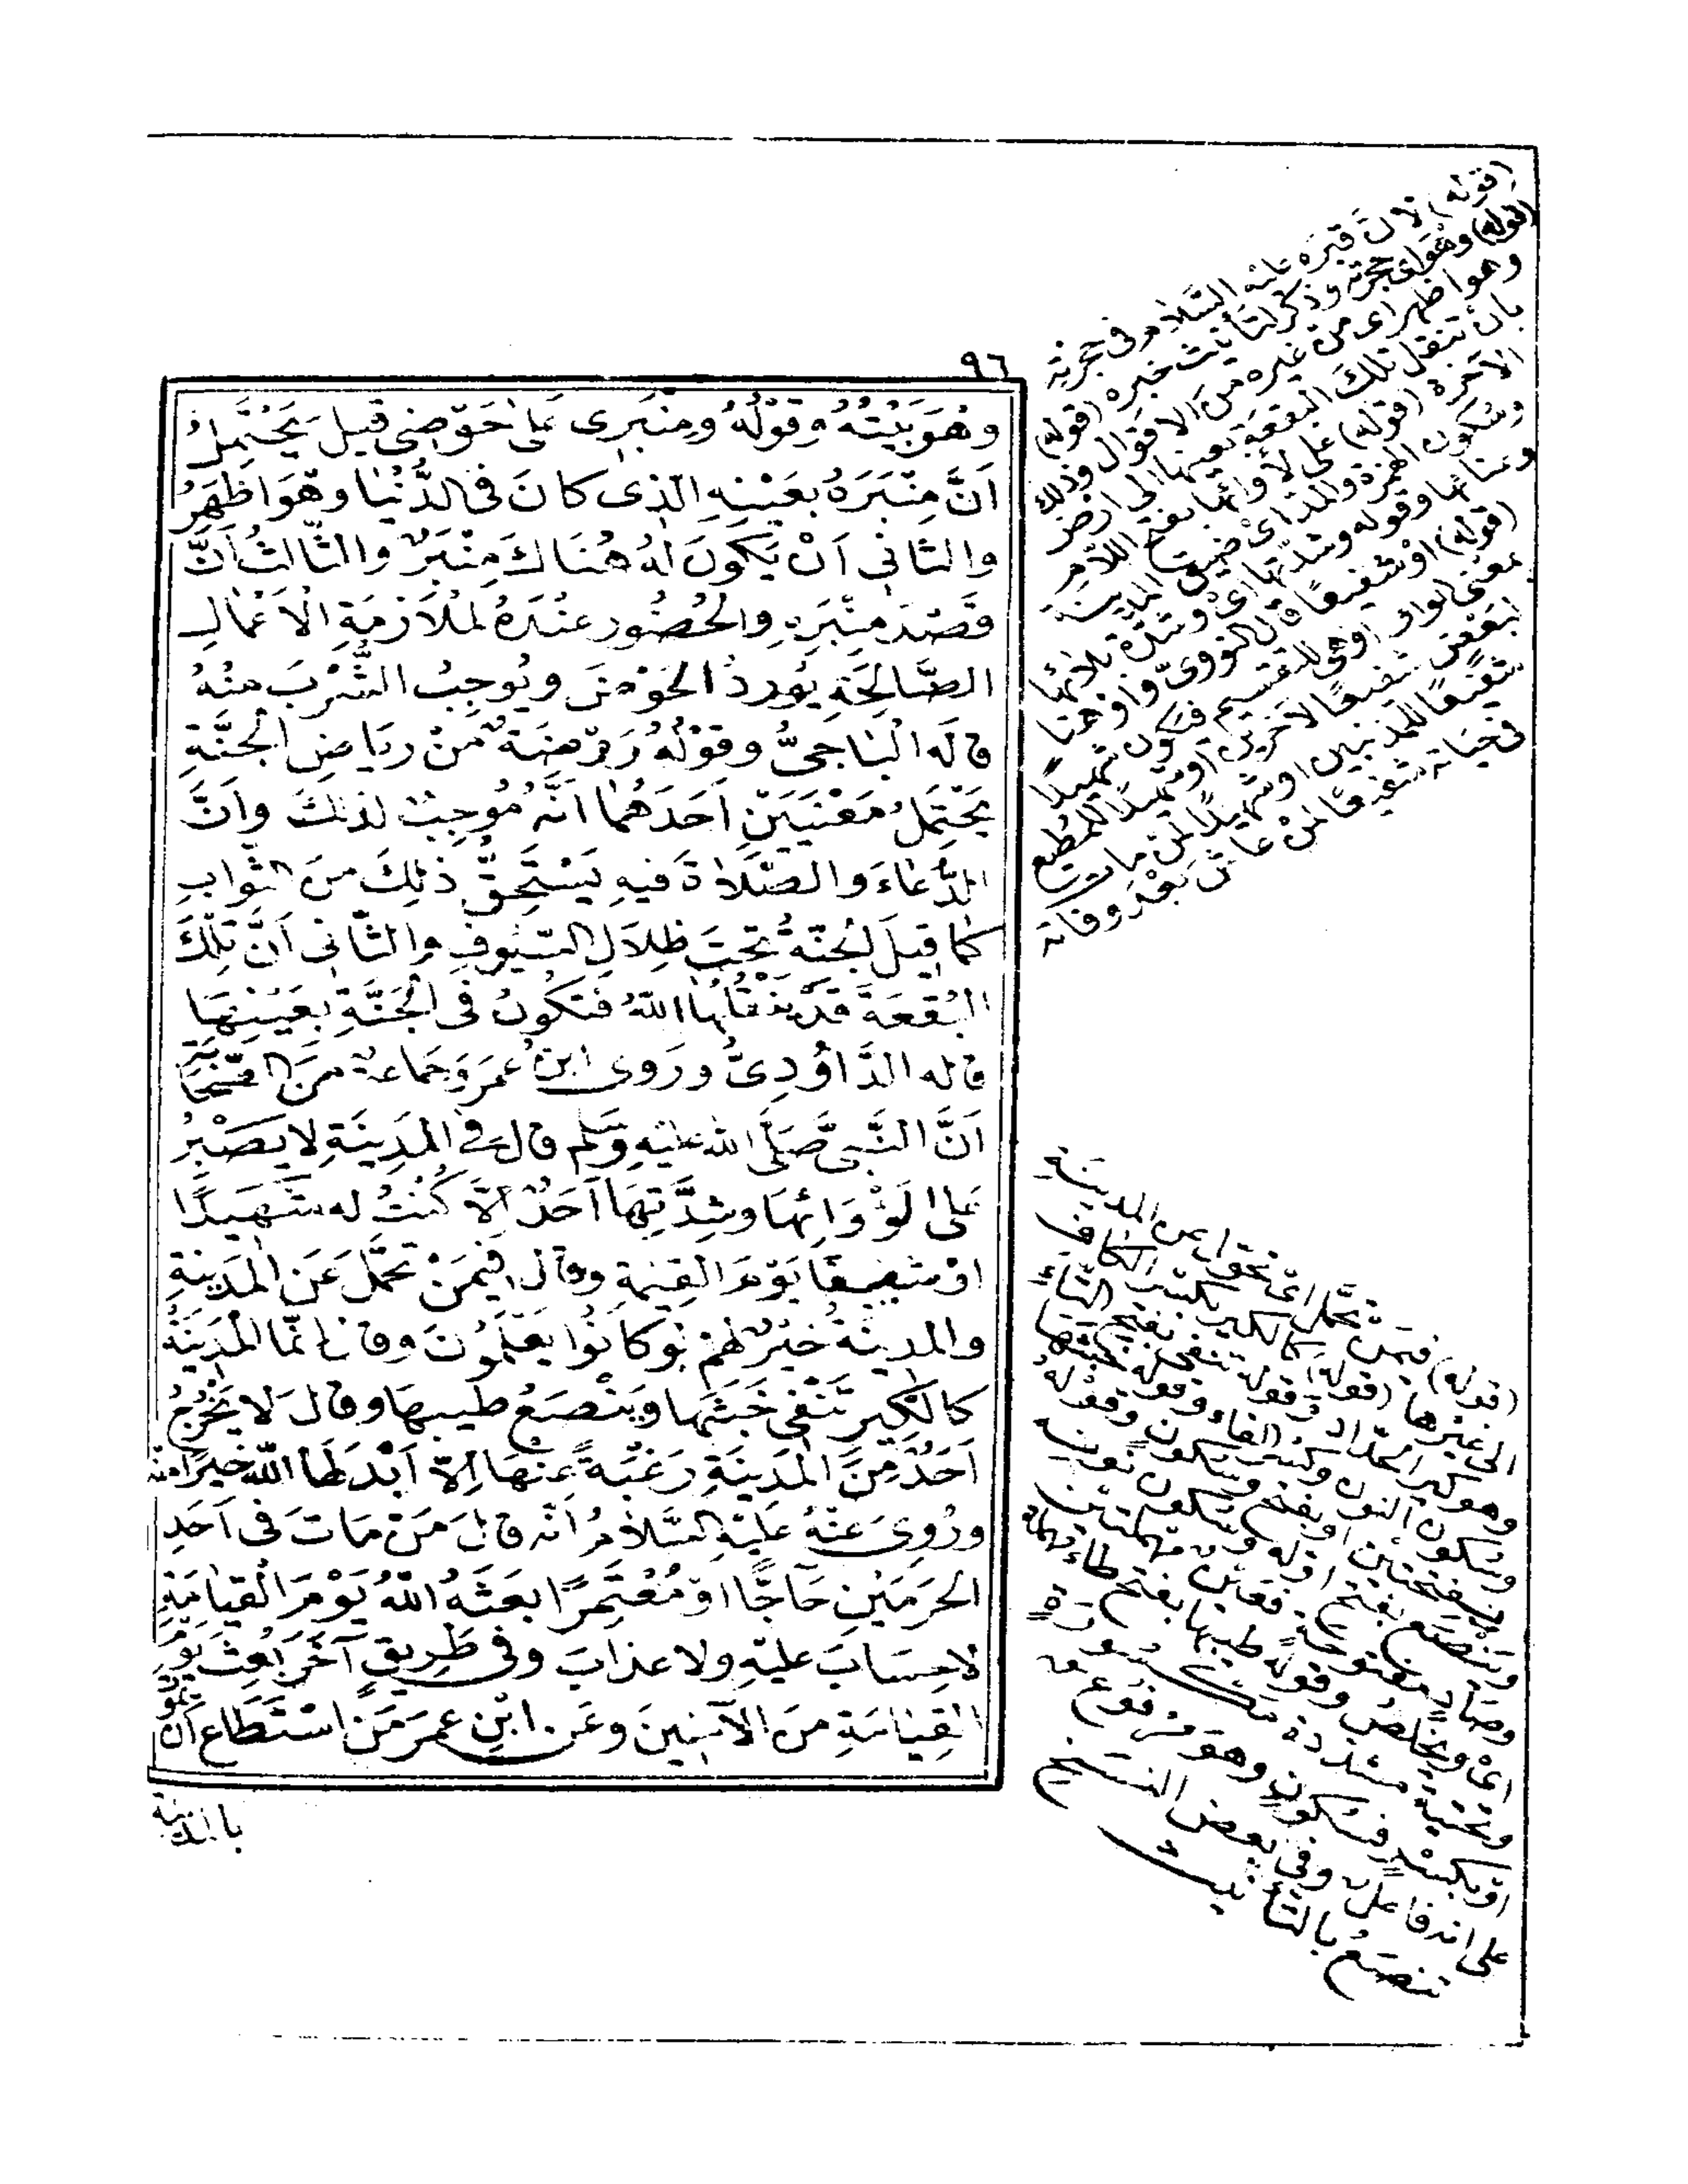 ٩٦
وهُوَ بَيْتُهُ وقوْلُهُ ومِنْبَرِى عَلى حَوْضِى قيلَ يَحْتَمِلُ
اَنَّ مِنْبَرَهُ بعَيْنِهِ الّذِى كانَ فى الدُّنْيَا وهوَ اَظْهَرُ
والثانى اَنْ يَكونَ لهُ هُنَاكَ مِنْبَرٌ والثّالثُ اَنَّ
قَصْدَ مِنْبَرِهِ والحُضُورَ عنْدَهُ لمُلاَزمَةِ الاَعْمَالِ
الصَّالِحَةِ يُورِدُ الحوْضَ ويُوجِبُ الشُّرْبَ منْهُ
قالَه البَاجىُّ وقوْلُهُ رَوْضَةٌ منْ ريَاضِ الجنَّةِ
يَحْتَمِلُ مَعْنَيَيْنِ اَحَدَهُما اَنَّهُ مُوجِبٌ لذلكَ واَنَّ
الدُّعَاءَ والصَّلاَةَ فيهِ يَسْتَحِقُّ ذلِكَ منَ الثوابِ
كما قيلَ الجنّةُ تحتَ ظِلاَلِ السّيُوفِ والثّانى اَنَّ تلْكَ
البُقعَةَ قدْ يَنْقُلُهَا اللهُ فتكُونُ فى الجَنَّةِ بعَيْنِهَا
قاله الدَّاوُدِىُّ ورَوى ابنُ عُمَرَ وجَماعةٌ منَ الصّحابَةِ
اَنَّ النَّبىَّ صَلَّى الله عليْهِ وسَلم قالَ فى المدِينَةِ لا يَصْبِرُ
عَلى لَاْوَائِهَا وشِدَّتِهَا اَحَدٌ اِلاَّ كُنْتُ له شَهيدًا
اوْ شفيعًا يَوْمَ القيمةِ وقالَ فيمَنْ تحمَّلَ عَنِ المدينةِ
والمدينةُ خيْرٌ لهمْ لوْ كانوُا يعْلَمُونَ وقالَ اِنّمَا المدينَةُ
كالكِيرِ تَنْفِى خَبَثهَا ويَنْصَعُ طيبهَا وقالَ لا يخْرُجُ
اَحَدٌ مِنَ المدينَةِ رَغْبَةً عنْهَا اِلاّ اَبْدَلهَا اللهُ خيْرًا منه
ورُوِىَ عَنْهُ عَليْهِ السَّلاَمُ اَنّه قالَ مَنْ مَاتَ فى اَحَدِ
الحرَمَيْنِ حَاجًّا اوْ مُعْتَمِرًا بعَثَهُ اللهُ يَوْمَ القيَامَةِ
لاحِسَابَ عليْهِ ولا عذابَ وفى طَرِيقٍ آخَرَ بُعِثَ يوْمَ
القِيَامَةِ منَ الآمِنِينَ وعَنِ ابْنِ عمرَ مَنِ اسْتَطَاعَ اَنْ يموتَ
بالمدينة
(قوله) لانّ قبره عليه السَّلام فى حجرته
(قوله) وهو فى حجرته وذكر لتأنيث خبره (قوله)
وهو اظهر اى من غيره من الاقوال وذلك
بان تنقل تلك البقعة بعينها الى ارض
الآخرة (قوله) على لأوائها بفتح اللام
وسكون الهمزة والمد اى ضيق المدينة
وقوله وشدّتها اى وشدّة بلائها
(قوله) او شفيعًا قال النووىّ واو هنا
بمعنى الواو اوهى للتقسيم فيكون شهيدًا
لبعض شفيعًا لآخرين او شهيدًا للمطيع
شفيعًا للمذنبين او شهيدًا لمن مات
فى حياته شفيعًا لمن عاش بَعْد وفاته
(قوله) فيمن تحمّل اى تحوّل عن المدينة
الى غيرها (قوله) كالكير بكسر الكاف
وهو كير الحدّاد وقوله تنفى بفتح التاء
وسكون النون وكسر الفاء وقوله خبثها
بفتحتين او بفتح وسكون وقوله
وينصع بفتح اوّله وسكون نونه
وصاد مفتوحة فعين مهملتين
اى ويخلص وقوله طيبها بفتح طاء مهملة
وتحتية مشددة مكسورة
او بكسر فسكون وهو مرفوع
على انه فاعل وفى بعض النسخ
تنصع بالتأنيث